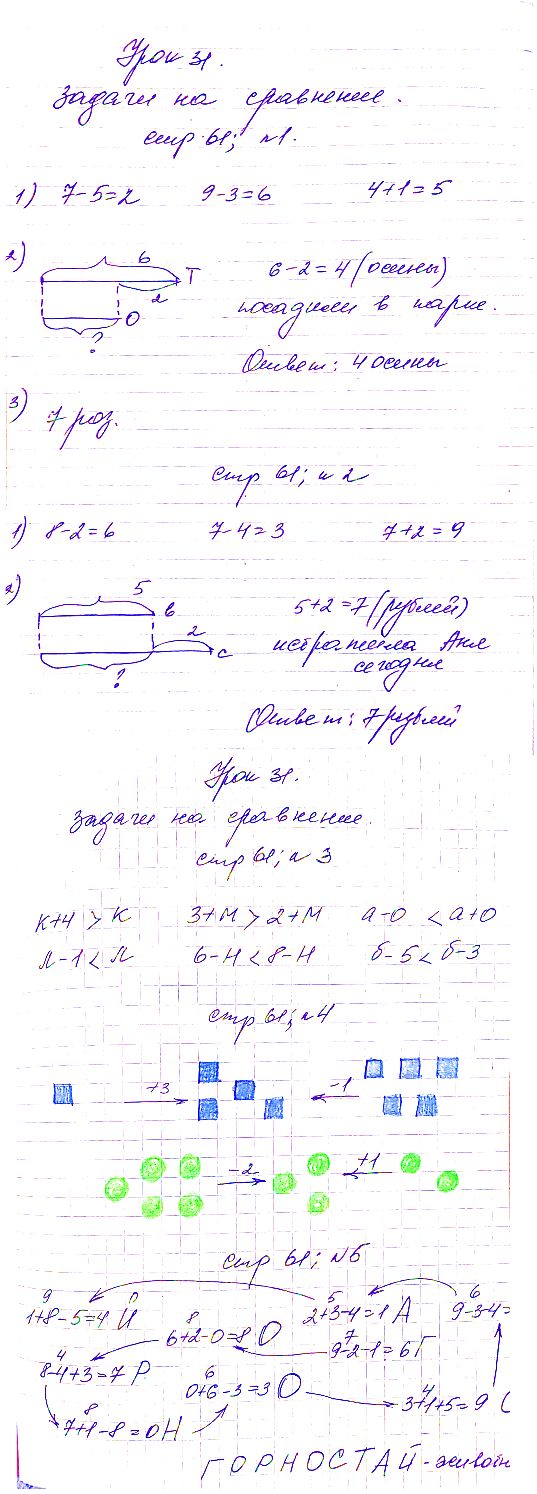 Урок 31.
Задачи на сравнение.
стр 61; №1.
1) 7-5=2 9-3=6 4+1=5
2) 6 Т 2 О ?
6-2=4 (осины)
посадили в парке.
Ответ: 4 осины
3) 7 роз.
стр 61; № 2
1) 8-2=6 7-4=3 7+2=9
2) 5 В 2 С ?
5+2=7 (рублей)
истратила Аня
сегодня
Ответ: 7 рублей
Урок 31.
Задачи на сравнение.
стр 61; № 3
К+4 > К 3+М > 2+М а-0 < а+0
Л-1 < Л 6-Н < 8-Н б-5 < б-3
стр 61; №4
+3 -1
-2 +1
стр 61; №5
9 5 6
1+8-5=4 Й 2+3-4=1 А 9-3-4=
8 7
6+2-0=8 О 9-2-1=6 Г
4 6 4
8-4+3=7 Р 0+6-3=3 О 3+1+5=9
8
7+1-8=0 Н
ГОРНОСТАЙ - животн